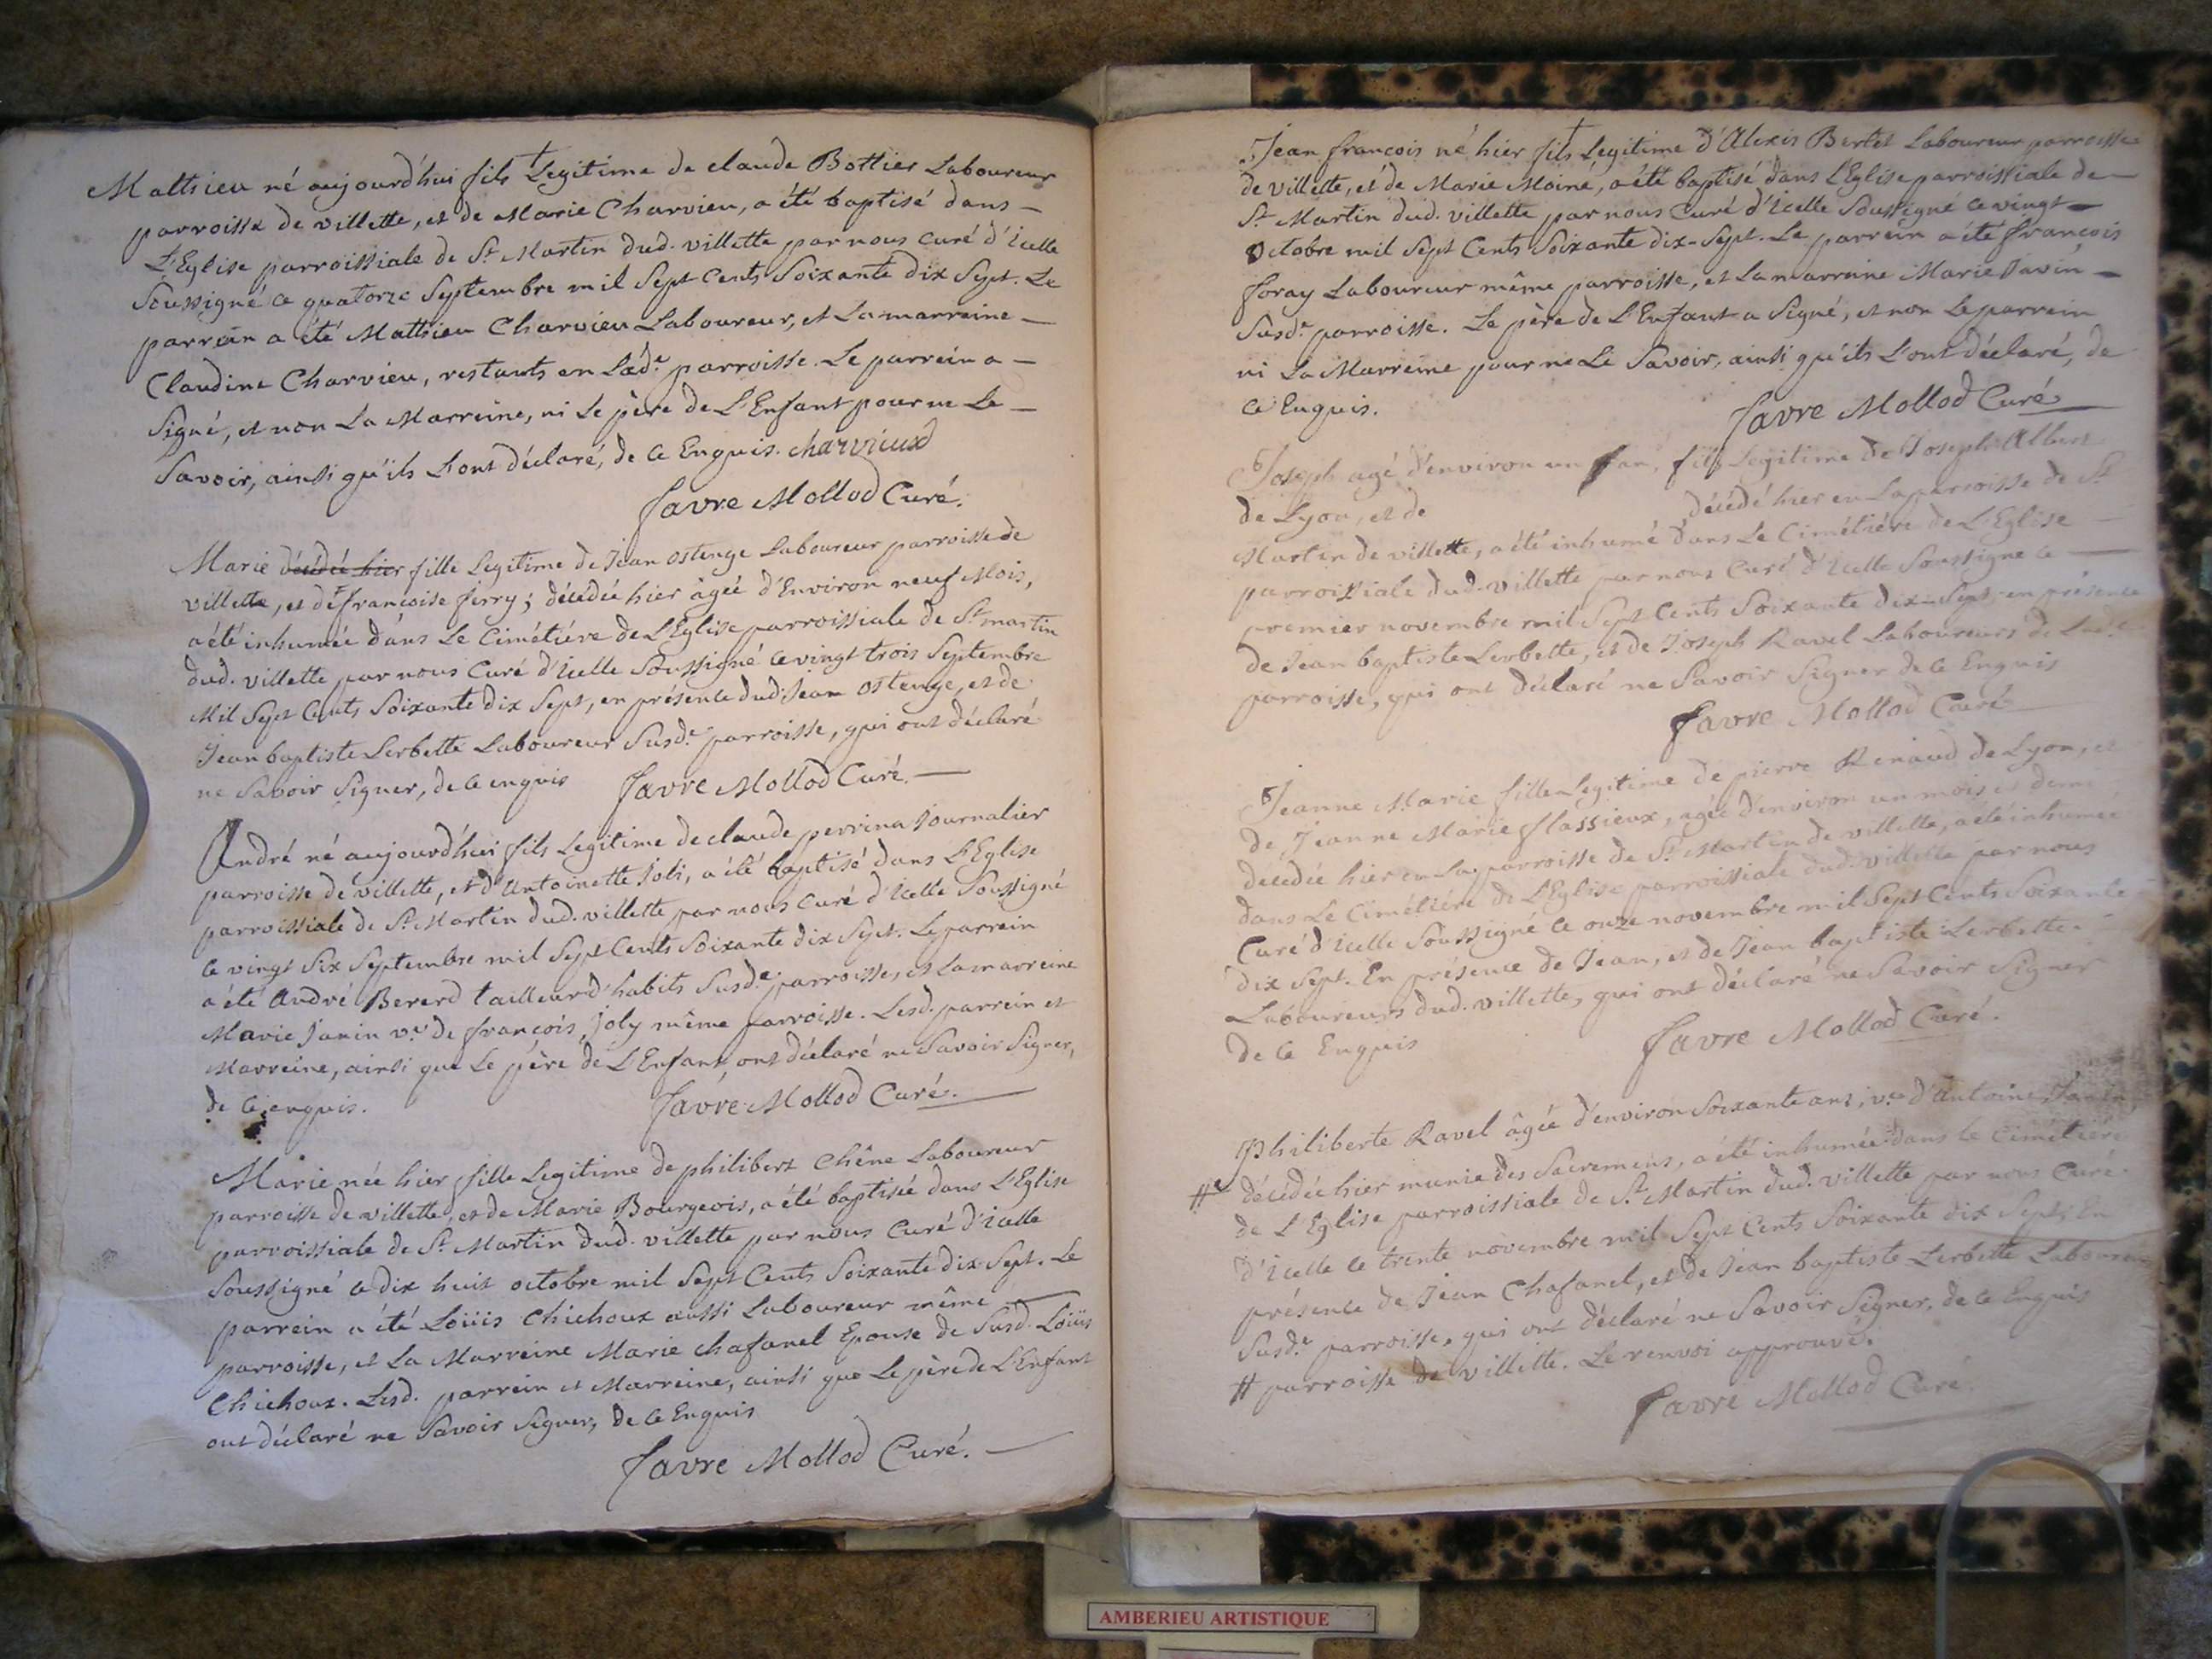 Matthieu né aujourd'hui fils Legitime de claude Bottier Laboureur
parroisse de villette, et de Marie Charvieu, a été baptisé dans –
L'Eglise parroissiale de St Martin dud. villette par nous curé d'icelle
Soussigné ce quatorze Septembre mil Sept Cents Soixante dix Sept. Le
parrain a été Matthieu Charvieu Laboureur, et La marreine –
Claudine Charvieu, restants en Lade parroisse. Le parrein a –
Signé, et non La Marreine, ni Le père de L'Enfant pour ne Le –
Savoir, ainsi qu'ils L'ont déclaré, de ce Enquis. charvieux
favre Mollod Curé.
Marie décédée hier fille Legitime de Jean ostenge Laboureur parroisse de
villette, et de françoise firry; décédée hier âgée d'Environ neuf Mois,
a été inhumée dans Le Cimétiére de L'Eglise parroissiale de St martin
dud. villette par nous Curé d'icelle Soussigné ce vingt trois Septembre
Mil Sept Cents Soixante dix Sept, en présence dud. Jean ostenge, et de
Jean baptiste Lerbette Laboureur Susde parroisse, qui ont déclaré
ne Savoir Signer, de ce enquis favre Mollod Curé. –
André né aujourd'hui fils Legitime de claude perrina Journalier
parroisse de villette, et d'Antoinette Joli, a été baptisé dans L'Eglise
parroissiale de St Martin dud. villette par nous Curé d'icelle Soussigné
ce vingt Six Septembre mil Sept Cents Soixante dix Sept. Le parrein
a été André Bererd tailleur d'habits Susde parroisse, et La marreine
Marie Janin ve de françois joly même parroisse. Lesd. parrein et
Marreine, ainsi que Le père de L'Enfant, ont déclaré ne Savoir Signer,
de ce enquis. favre Mollod Curé.
Marie née hier fille Legitime de philibert Chêne Laboureur
parroisse de villette, et de Marie Bourgeois, a été baptisée dans L'Eglise
parroissiale de St Martin dud. villette par nous Curé d'icelle
Soussigné ce dix huit octobre mil Sept Cents Soixante dix Sept. Le
parrein a été Loüis Chichoux aussi Laboureur même
parroisse, et La Marreine Marie chafanel Epouse de Susd. Loüis
Chichoux. Lesd. parrein et Marreine, ainsi que Le père de L'Enfant
ont déclaré ne Savoir Signer, de ce Enquis
favre Mollod Curé. –
Jean françois né hier fils Legitime d'Alexis Bertet Laboureur parroisse
de villette, et de Marie Moiné, a été baptisé dans L'Eglise parroissiale de –
St Martin dud. villette par nous Curé d'icelle Soussigné ce vingt –
octobre mil Sept Cents Soixante dix-Sept. Le parrein a été françois
foray Laboureur même parroisse, et La marreine Marie Javin –
Susde parroisse. Le père de L'Enfant a Signé, et non Le parrein
ni La Marreine pour ne Le Savoir, ainsi qu'ils L'ont déclaré, de
ce Enquis. favre Mollod Curé
Joseph agé d'environ un an, fils Legitime de Joseph Albert
de Lyon, et de décédé hier en La parroisse de St
Martin de villette, a été inhumé dans Le Cimétiére de L'Eglise –
parroissiale dud. villette par nous Curé d'icelle Soussigné ce –
premier novembre mil Sept Cents Soixante dix-Sept, en présence
de Jean baptiste Lerbette, et de Joseph Ravel Laboureurs de Lade
parroisse, qui ont déclaré ne Savoir Signer de ce Enquis
favre Mollod Curé
Jeanne Marie fille Legitime de pierre Renaud de Lyon, et
de Jeanne Marie flassieux, agée d'environ un mois et demi
décédée hier en La parroisse de St Martin de villette, a été inhumée
dans Le Cimétiére de L'Eglise parroissiale dud. villette par nous
Curé d'icelle Soussigné ce onze novembre mil Sept Cents Soixante
dix Sept. En présence de Jean, et de Jean baptiste Lerbette
Laboureurs dud. villette, qui ont déclaré ne Savoir Signer
de ce Enquis favre Mollod Curé.
Philiberte Ravel âgée d'environ Soixante ans, ve d'Antoine Janin
# décédée hier munie des Sacremens, a été inhumée dans Le Cimétiére
de L'Eglise parroissiale de St Martin dud. villette par nous Curé
d'icelle ce trente novembre mil Sept Cents Soixante dix Sept, En
présence de Jean Chafanel, et de Jean baptiste Lerbette Laboureurs
Susde parroisse, qui ont déclaré ne Savoir Signer, de ce Enquis
# parroisse de villette. Le renvoi approuvé.
favre Mollod Curé.
AMBERIEU ARTISTIQUE